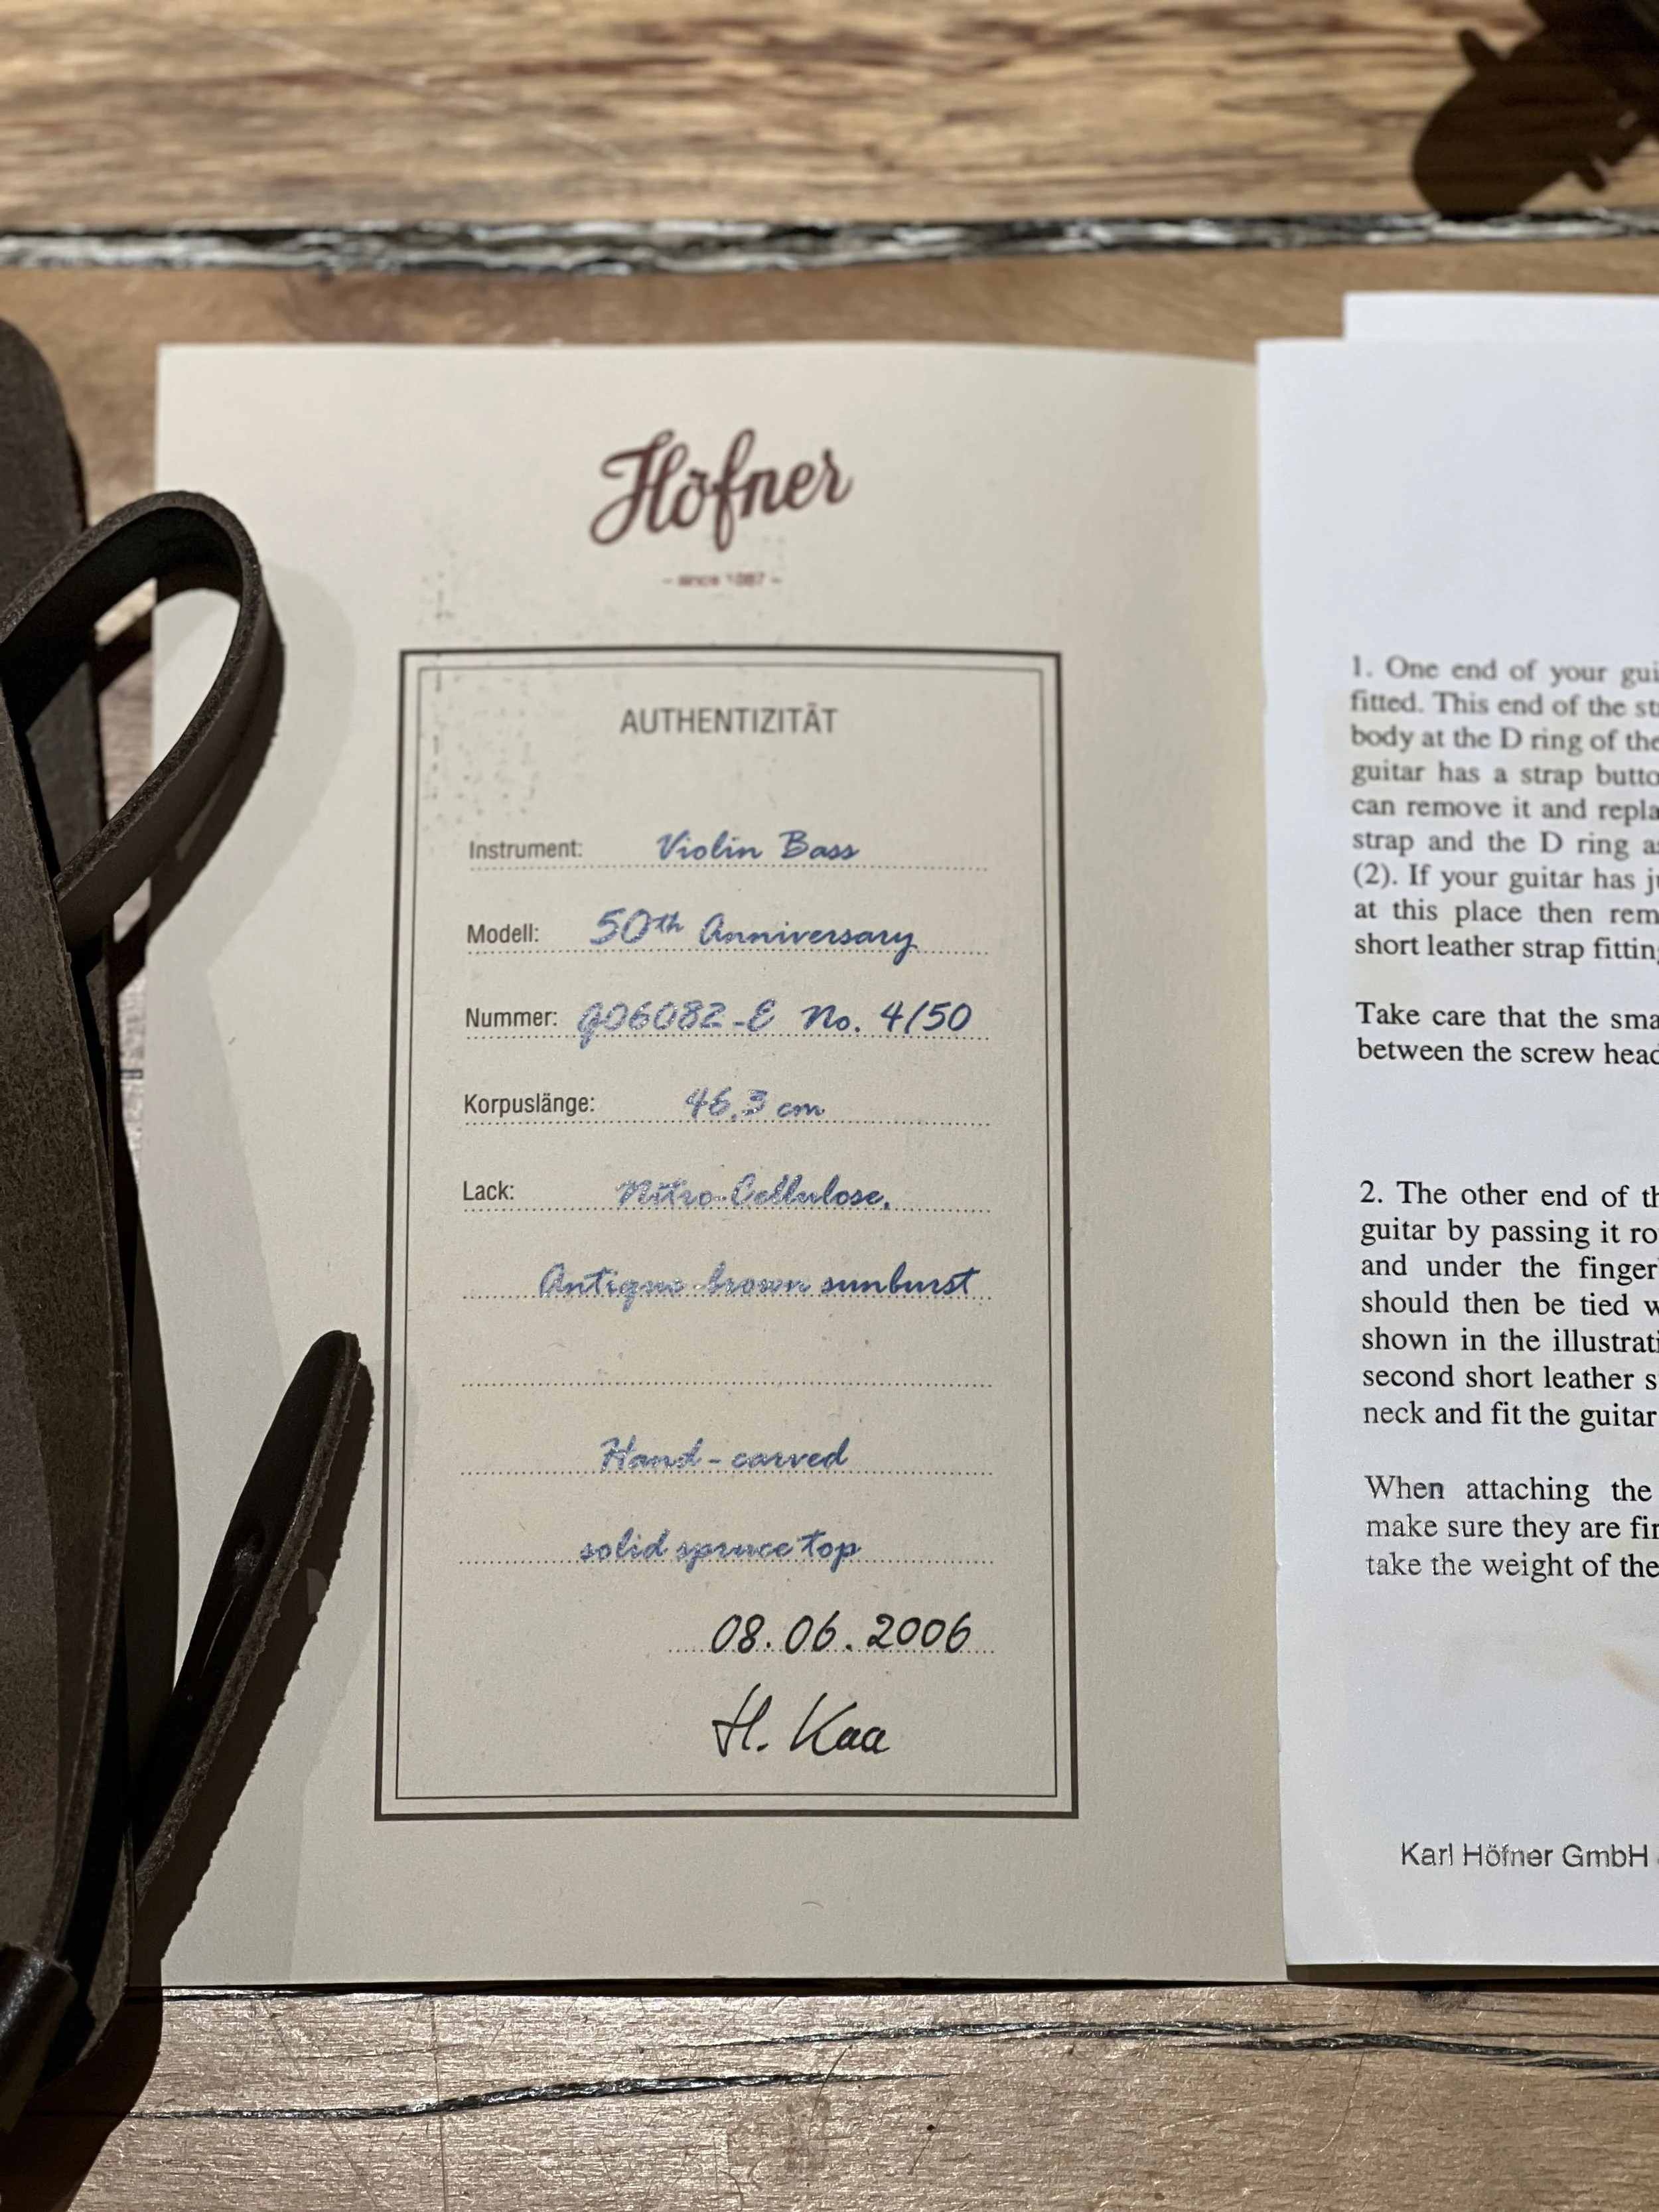 Höfner
- since 1887 -
AUTHENTIZITÄT
Instrument: Violin Bass
Modell: 50th Anniversary
Nummer: J06082-E No. 4/50
Korpuslänge: 46,3 cm
Lack: Nitro-Cellulose,
Antique-brown sunburst
Hand-carved
solid spruce top
08.06.2006
H. Kaa
1. One end of your gui
fitted. This end of the st
body at the D ring of the
guitar has a strap butto
can remove it and repla
strap and the D ring a
(2). If your guitar has j
at this place then rem
short leather strap fitting
Take care that the sma
between the screw head
2. The other end of th
guitar by passing it ro
and under the finger
should then be tied w
shown in the illustrati
second short leather s
neck and fit the guitar
When attaching the
make sure they are fir
take the weight of the
Karl Höfner GmbH